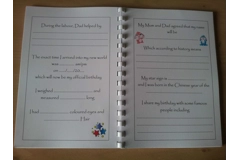 During the labour, Dad helped by
The exact time I arrived into my new world
was ........ am/pm
which will now be my official birthday
I weighed
and measured ........ long
I had ........ coloured eyes and
hair
My Mum and Dad agreed that my name
will be
Which according to history means
My star sign is
and I was born in the Chinese year of the
I share my birthday with some famous
people including